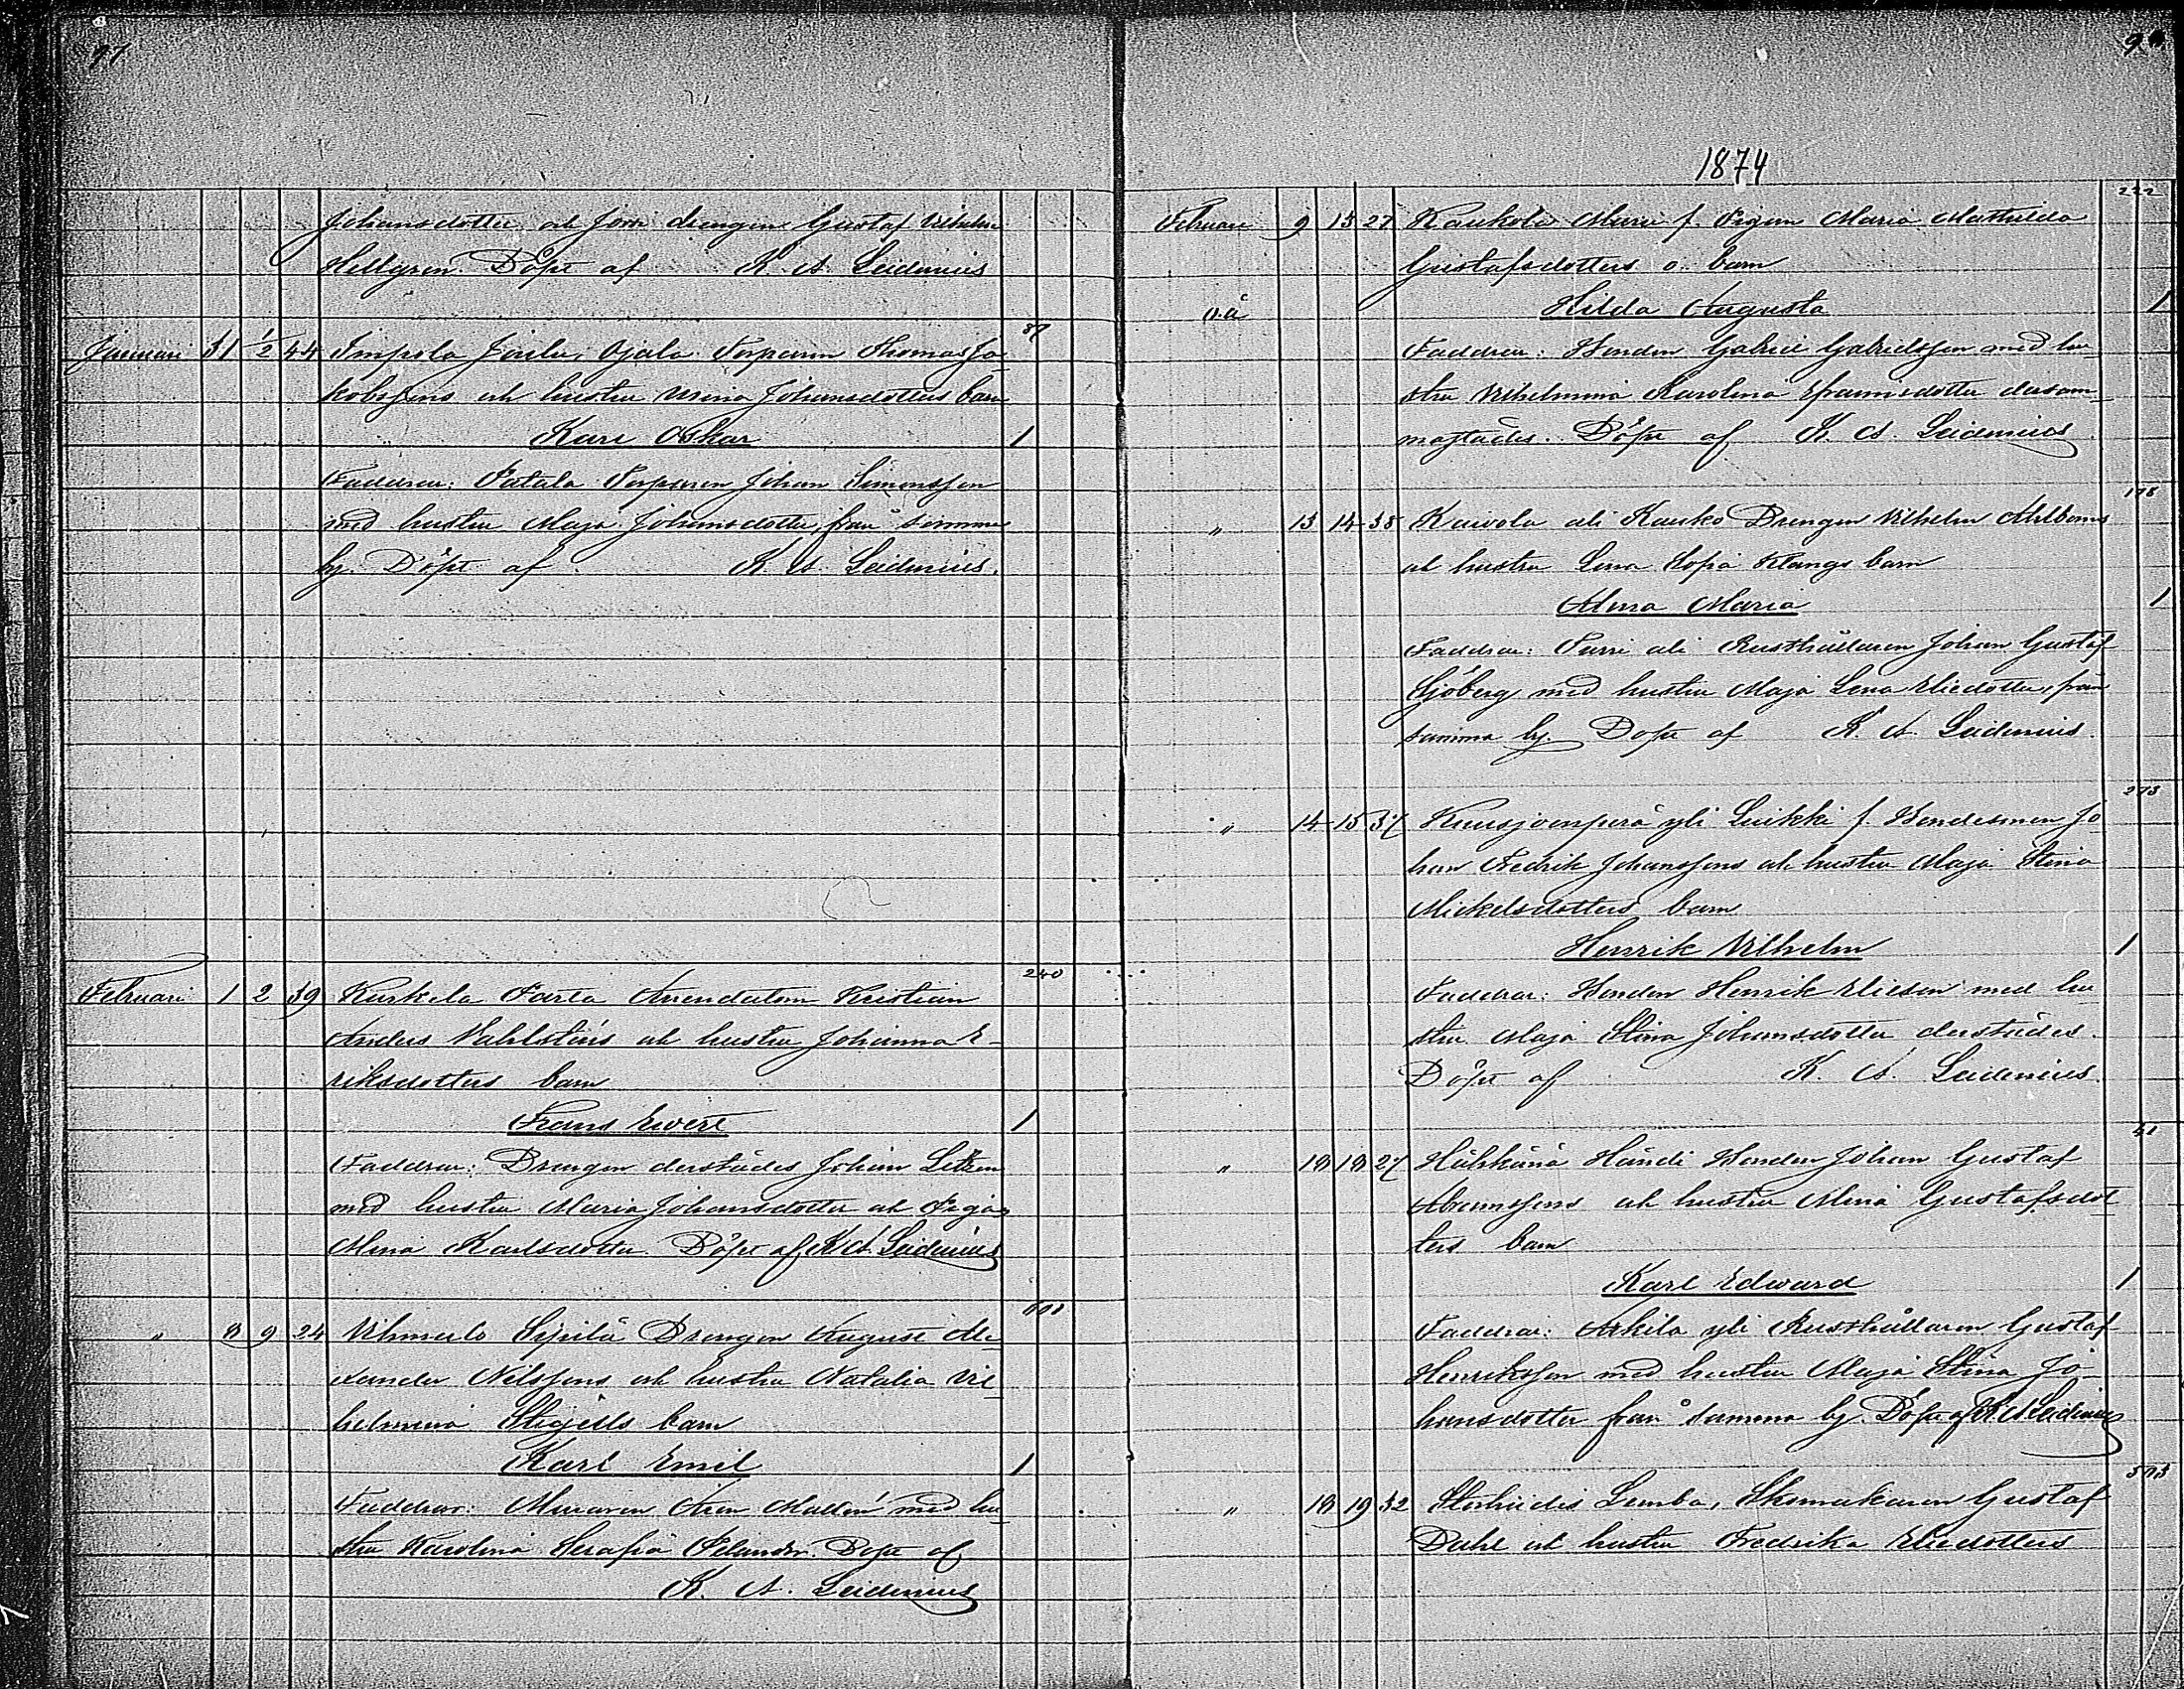 97
Johansdotter och Jorn drengen Gustaf Vilhelm
Hellgren. Döpt af K. A. Leidenius
87
Januari 31 1/2 44 Impola Jaila, Ojala Torparen Thomas Ja-
kobssons och hustru Mina Johansdotters barn
Karl Oskar 1
Faddrar: Torparen Johan Simonsson
med hustru Maja Johansdotter, från samma
by. Döpt af K. A. Leidenius.
240
Februari 1 2 39 Kurkela Parta Arrendatorn Kristian
Anders Vahlsténs och hustru Johanna E-
riksdotters barn
Frans Evert 1
Faddrar: Drengen derstädes Johan Letzen
med hustru Maria Johansdotter och Pigan
Mina Karlsdotter. Döpt af K. A. Leidenius
" 8 9 24 Sipilä Drengen August Ale-
xander Nilssons och hustru Natalia Vil-
helmina barn
Karl Emil 1
Faddrar: Muraren med hu-
stru Karolina Serafia Döpt af
K. A. Leidenius
1874
222
Februari 9 15 27 Kaukola f. Pigan Maria Mathilda
Gustafsdotters o. barn
o.ä Hilda Augusta 1
Faddrar: Bonden Gabriel Gabrielsson med hu-
stru Vilhelmina Karolina Efraimsdotter dersam-
mastädes. Döpt af K. A. Leidenius
178
" 13 14 38 Kaivola ali Kauko Drengen Vilhelm Ahlboms
och hustru Lena Sofia Klangs barn
Alma Maria 1
Faddrar: ali Rusthållaren Johan Gustaf
Sjöberg med hustru Maja Lena Eliedotter, från
samma by. Döpt af K. A. Leidenius.
273
" 14 15 37 Kuusjoenperä yli Luikki f. Bondesonen Jo-
han Fredrik Johanssons och hustru Maja Stina
Mickelsdotters barn
Henrik Vilhelm 1
Faddrar: Bonden Henrik Elieson med hu-
stru Maja Stina Johansdotter derstädes.
Döpt af K. A. Leidenius.
41
" 18 18 27 Häihkänä Händi Bonden Johan Gustaf
Abramssons och hustru Mina Gustafsdot-
ters barn
Karl Edward 1
Faddrar: Arkila yli Rusthållaren Gustaf
Henriksson med hustru Maja Stina Jo-
hansdotter från samma by. Döpt af K. A. Leidenius
" 18 19 32 Storhiidis Lemba, Skomakaren Gustaf
Dahl och hustru Fredrika Eliedotters